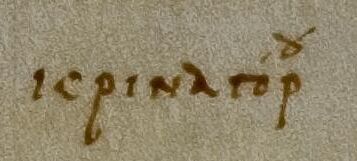 ιϲρινατόρȣ